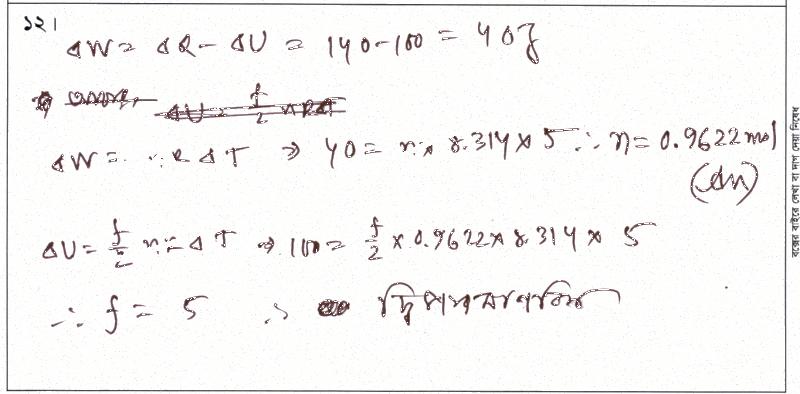 ১২।
ΔW = ΔQ - ΔU = 140-100 = 40J
ΔU = f/2 nRΔT
ΔW = nRΔT ⇒ 40 = n × 8.314 × 5 ∴ n = 0.9622 mol
(Ans)
ΔU = f/2 nRΔT ⇒ 100 = f/2 × 0.9622 × 8.314 × 5
∴ f = 5 ∴ দ্বিপারমাণবিক
বক্সের বাইরে লেখা বা দাগ দেয়া নিষেধ